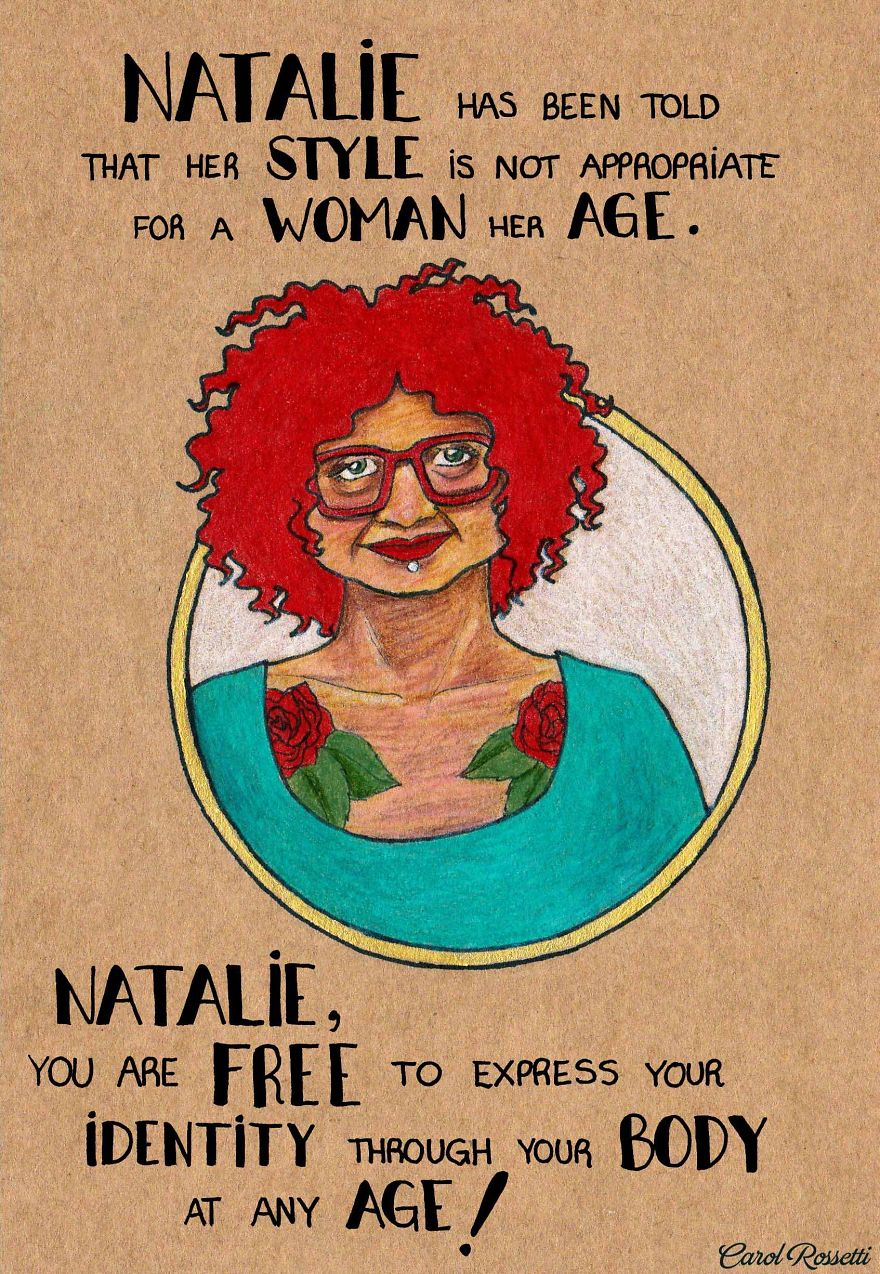 NATALiE HAS BEEN TOLD
THAT HER STYLE iS NOT APPROPRiATE
FOR A WOMAN HER AGE.
NATALiE,
YOU ARE FREE TO EXPRESS YOUR
iDENTiTY THROUGH YOUR BODY
AT ANY AGE!
Carol Rossetti